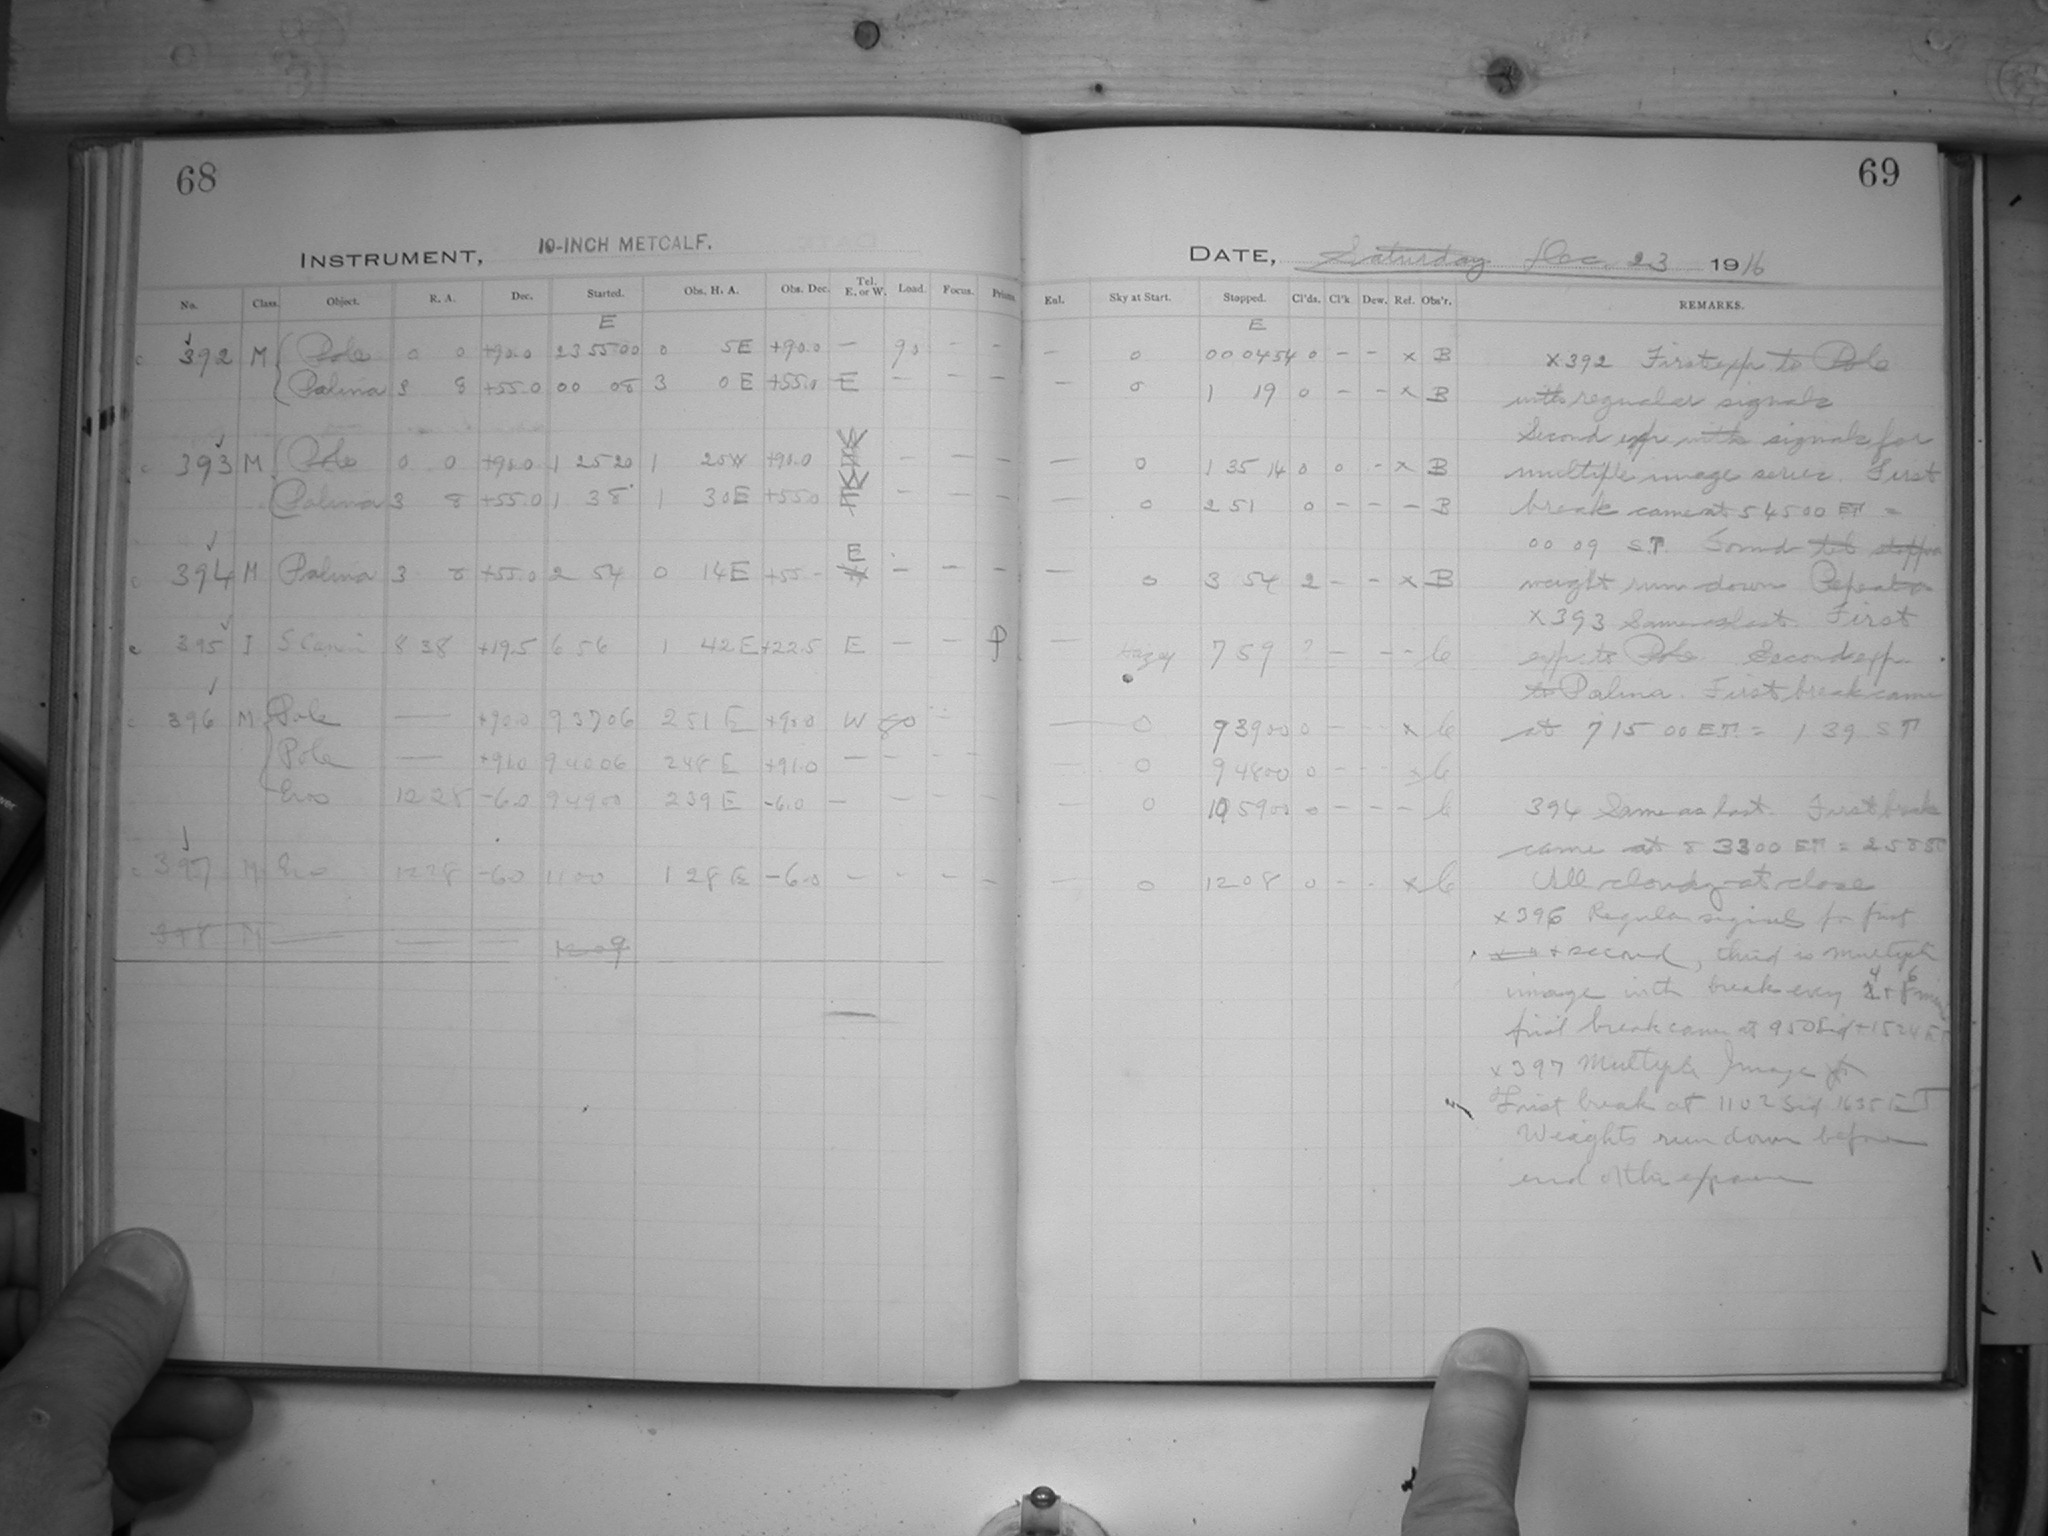 68
INSTRUMENT, 10-INCH METCALF.
No. Class. Object. R. A. Dec. Started. Obs. H. A. Obs. Dec. Tel. E. or W. Load. Focus. Prisms.
E
392 M Pole 0 0 +90.0 23 55 00 0 5E +90.0 — 90 — —
Palina 3 8 +55.0 00 08 3 0E +55.0 E — — —
393 M Pole 0 0 +90.0 1 25 20 1 20W +90.0 — — —
Palina 3 8 +55.0 1 38 1 30E +55.0 E — — —
394 M Palina 3 8 +55.0 2 54 0 14E +55 - E — — —
395 I S Cancri 8 38 +19.5 6 56 1 42E +22.5 E — — P
396 M Pole — +90.0 9 37 06 2 51 E +90.0 W 80 —
Pole — +91.0 9 40 06 2 48 E +91.0 — — — —
Eros 12 28 -6.0 9 49 00 2 39 E -6.0 — — — —
397 M Eros 12 28 -6.0 11 00 1 28 E -6.0 — - — —
398 M 12 09
69
DATE, Saturday Dec. 23 1916
Enl. Sky at Start. Stopped. Cl'ds. Cl'k Dew. Ref. Obs'r. REMARKS.
E
— 0 00 04 54 0 — — x B
— 0 1 19 0 — — x B
— 0 1 35 14 0 0 - x B
— 0 2 51 0 — — — B
— 0 3 54 2 — — x B
— Hazy 7 59 ? — — — C
— 0 9 39 00 0 — — x C
— 0 9 48 00 0 — — x C
— 0 10 59 00 0 — — — C
— 0 12 08 0 — - x C
x392 First exp to Pole
with regualar signals
Second expr with signals for
multiple image series. First
break came at 5 45 00 ET =
00 09 S.T. Found
weight run down Repeat
x393 Same as last. First
exp to Pole Second exp
to Palina. First break came
at 7 15 00 E.T. = 1 39 S T
394 Same as last. First break
came at 8 33 00 ET = 2 58 ST
All cloudy at close
x396 Regular signals for first
+ second, third is multiple
image with break every 4 + 6 min
first break came at 9 50 Sid + 15 24 E
x397 Multiple Image
First break at 11 02 Sid 16 35 E T
Weights run down before
end of the exposure